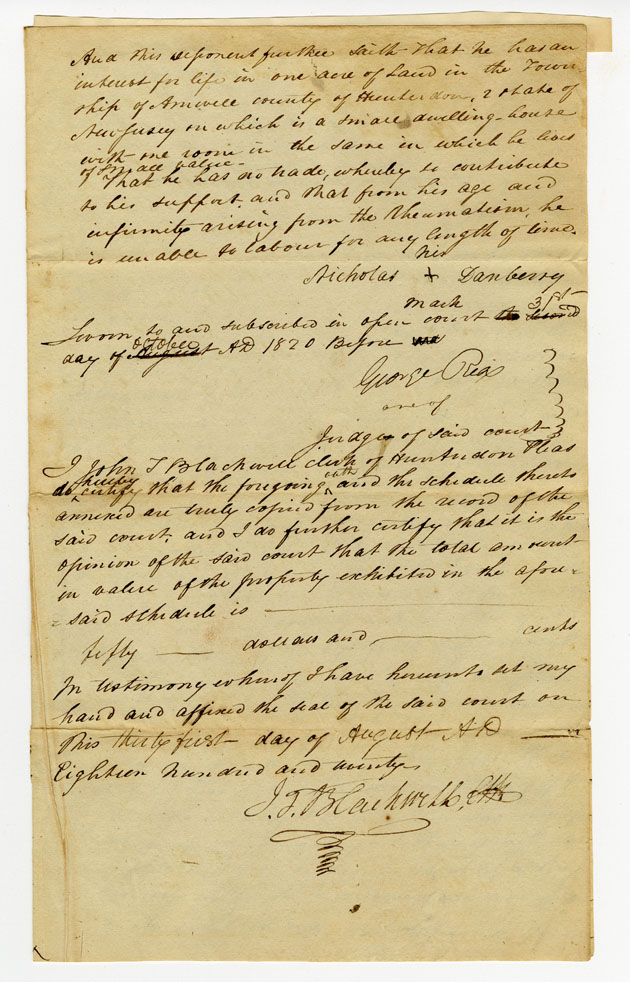 And this deponent further saith that he has an
interest for life in one acre of Land in the Town
ship of Amwell county of Hunterdon, & state of
New Jersey on which is a small dwelling-house
with one room in the same in which he lives
of small value.
That he has no trade, whereby to contribute
to his support, and that from his age and
infirmity arising from the Rheumatism, he
is unable to labour for any length of time.
his
Nicholas + Danberry
mark
Sworn to and subscribed in open court the second 31st
day of August october AD 1820 Before me
George Rea
one of
Judges of said court
I John T Blackwell clerk of Hunterdon Pleas
do hereby certify that the foregoing oath and the schedule thereto
annexed are truly copied from the record of the
said court, and I do further certify that it is the
opinion of the said court that the total amount
in value of the property exhibited in the afore=
=said schedule is
fifty dollars and cents
In testimony whereof I have hereunto set my
hand and affixed the seal of the said court on
this thirty first day of August AD
Eighteen hundred and twenty
J. T. Blackwell, Clk